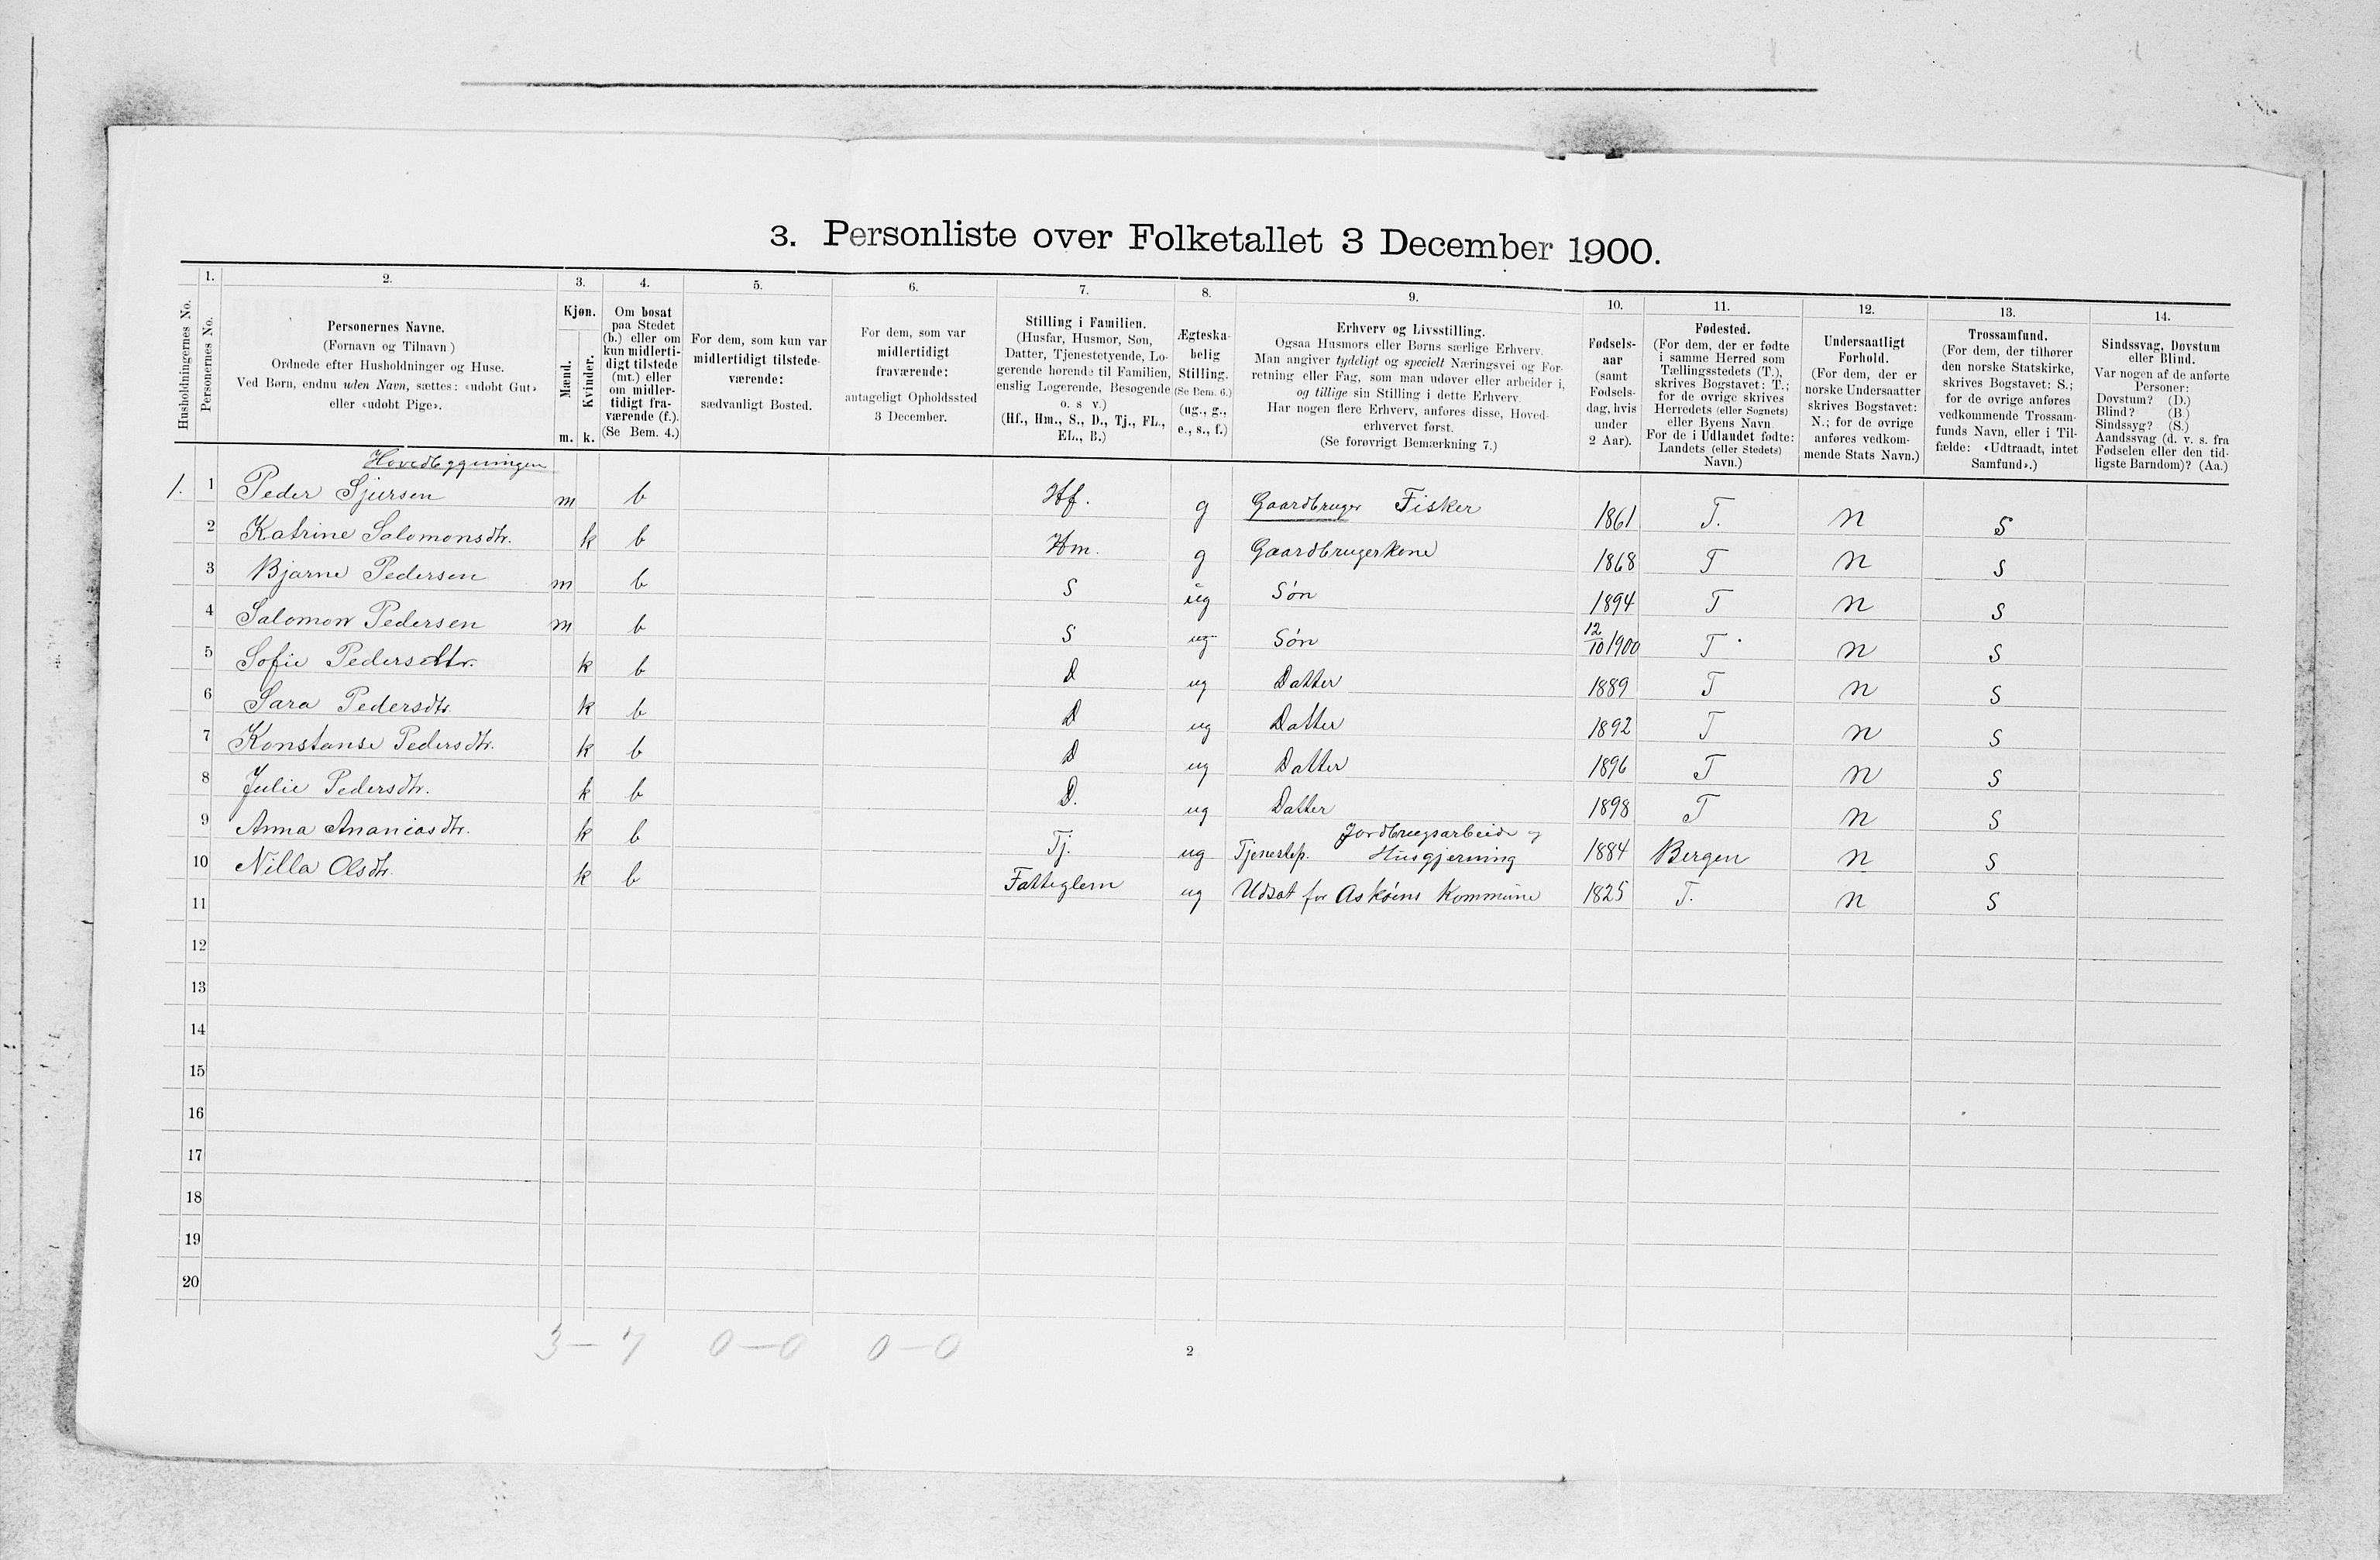 3. Personliste over Folketallet 3 December 1900.
Husholdningernes No.
1.
Personernes No.
2.
Personernes Navne.
(Fornavn og Tilnavn)
Ordnede efter Husholdninger og Huse.
Ved Børn, endnu uden Navn, sættes: «udøbt Gut»
eller «udøbt Pige».
3.
Kjøn.
Mænd.
Kvinder.
m. k.
4.
Om bosat
paa Stedet
(b.) eller om
kun midlerti-
digt tilstede
(mt.) eller
om midler-
tidigt fra-
værende (f.).
(Se Bem. 4.)
5.
For dem, som kun var
midlertidigt tilstede-
værende:
sædvanligt Bosted.
6.
For dem, som var
midlertidigt
fraværende:
antageligt Opholdssted
3 December.
7.
Stilling i Familien.
(Husfar, Husmor, Søn,
Datter, Tjenestetyende, Lo-
gerende hørende til Familien,
enslig Logerende, Besøgende
o. s v.)
(Hf., Hm., S., D., Tj., FL.,
EL., B.)
8.
Ægteska-
belig
Stilling.
(Se Bem. 6.)
(ug., g.,
e., s., f.)
9.
Erhverv og Livsstilling.
Ogsaa Husmors eller Børns særlige Erhverv.
Man angiver tydeligt og specielt Næringsvei og For-
retning eller Fag, som man udøver eller arbeider i,
og tillige sin Stilling i dette Erhverv.
Har nogen flere Erhverv, anføres disse, Hoved-
erhvervet først.
(Se forøvrigt Bemærkning 7.)
10.
Fødsels-
aar
(samt
Fødsels-
dag, hvis
under
2 Aar).
11.
Fødested.
(For dem, der er fødte
i samme Herred som
Tællingsstedets (T.),
skrives Bogstavet: T.;
for de øvrige skrives
Herredets (eller Sognets)
eller Byens Navn
For de i Udlandet fødte:
Landets (eller Stedets)
Navn.)
12.
Undersaatligt
Forhold.
(For dem, der er
norske Undersaatter
skrives Bogstavet:
N.; for de øvrige
anføres vedkom-
mende Stats Navn.)
13.
Trossamfund.
(For dem, der tilhører
den norske Statskirke,
skrives Bogstavet: S.;
for de øvrige anføres
vedkommende Trossam-
funds Navn, eller i Til-
fælde: «Udtraadt, intet
Samfund».)
14.
Sindssvag, Døvstum
eller Blind.
Var nogen af de anførte
Personer:
Døvstum? (D.)
Blind? (B.)
Sindssyg? (S.)
Aandssvag (d. v. s. fra
Fødselen eller den tid-
ligste Barndom)? (Aa.)
Hovedbygningen
1. 1 Peder Sjursen m b Hf. g Gaardbruger Fisker 1861 T. N S
2 Katrine Salomonsdtr. k b Hm. g Gaardbrugerkone 1868 T N S
3 Bjarne Pedersen m b S ug Søn 1894 T N S
4 Salomon Pedersen m b S ug Søn 12/10 1900 T N S
5 Sofie Pedersdtr. k b D ug Datter 1889 T N S
6 Sara Pedersdtr. k b D ug Datter 1892 T N S
7 Konstanse Pedersdtr. k b D ug Datter 1896 T N S
8 Julie Pedersdtr. k b D. ug Datter 1898 T N S
Jordbrugsarbeide og
9 Anna Ananiasdtr. k b Tj. ug Tjenestep. Husgjerning 1884 Bergen N S
10 Nilla Olsdtr. k b Fattiglem ug Udsat for Askøens Kommune 1825 T. N S
11
12
13
14
15
16
17
18
19
20
3 – 7 0 – 0 0 – 0
2